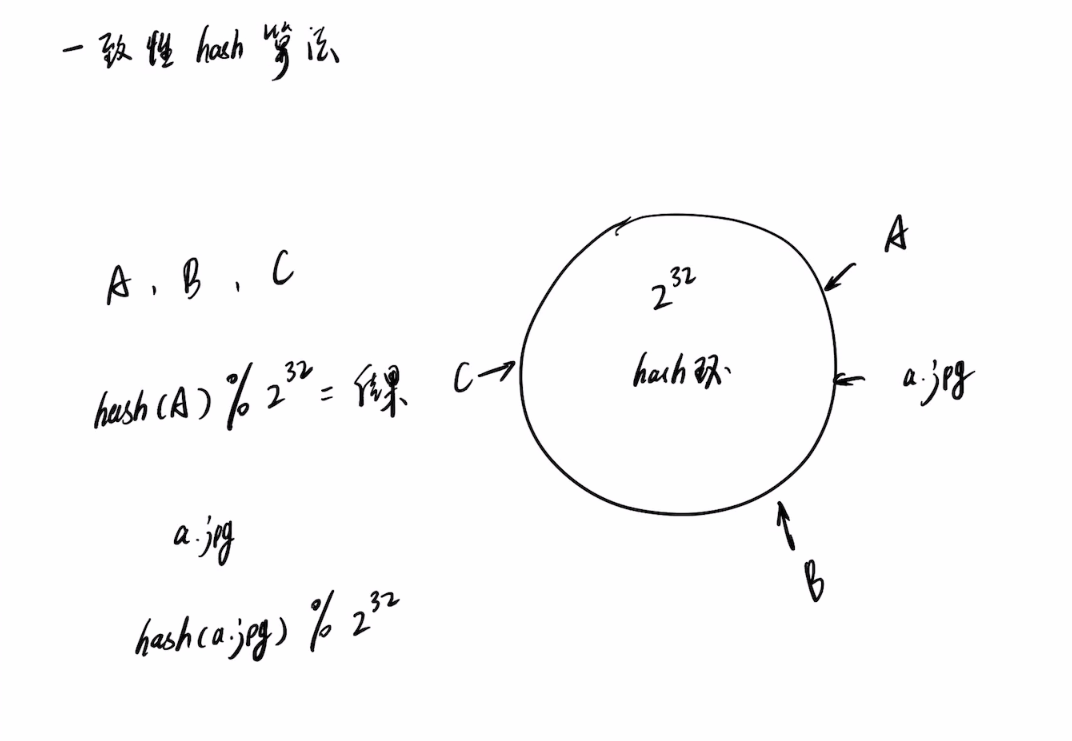 一致性hash算法
A、B、C
hash(A) % 2^32 = 结果
a.jpg
hash(a.jpg) % 2^32
2^32
hash环
A
a.jpg
B
C